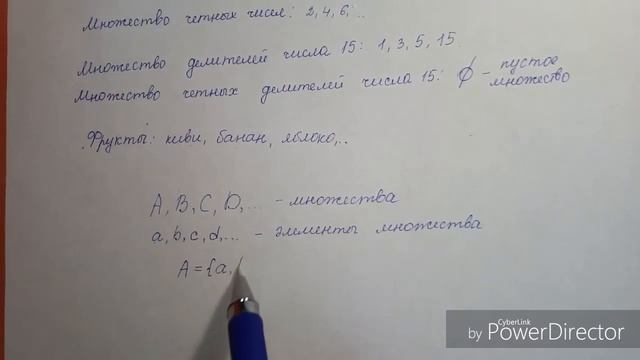 Множество четных чисел: 2, 4, 6, ..
Множество делителей числа 15: 1, 3, 5, 15
Множество четных делителей числа 15: ∅ - пустое множество
Фрукты: киви, банан, яблоко,..
A, B, C, D, ... - множества
a, b, c, d, ... - элементы множества
A = {a,
CyberLink
by PowerDirector